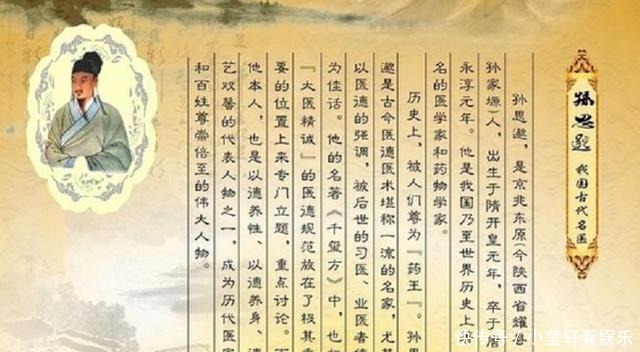 孙思邈 我国古代名医
孙思邈，是京兆东原(今陕西省耀县
孙家塬人，出生于隋开皇元年，卒于唐
永淳元年。他是我国乃至世界历史上
名的医学家和药物学家。
历史上，被人们尊为『药王』。孙思
邈是古今医德医术堪称一流的名家，尤其
以医德的强调，被后世的习医、业医者传
为佳话。他的名著《千玺方》中，也把
『大医精诚』的医德规范放在了极其重
要的位置上来专门立题，重点讨论。而
他本人，也是以德养性、以德养身、德
艺双馨的代表人物之一，成为历代医家
和百姓尊崇倍至的伟大人物。
快传号/小莹轩看娱乐